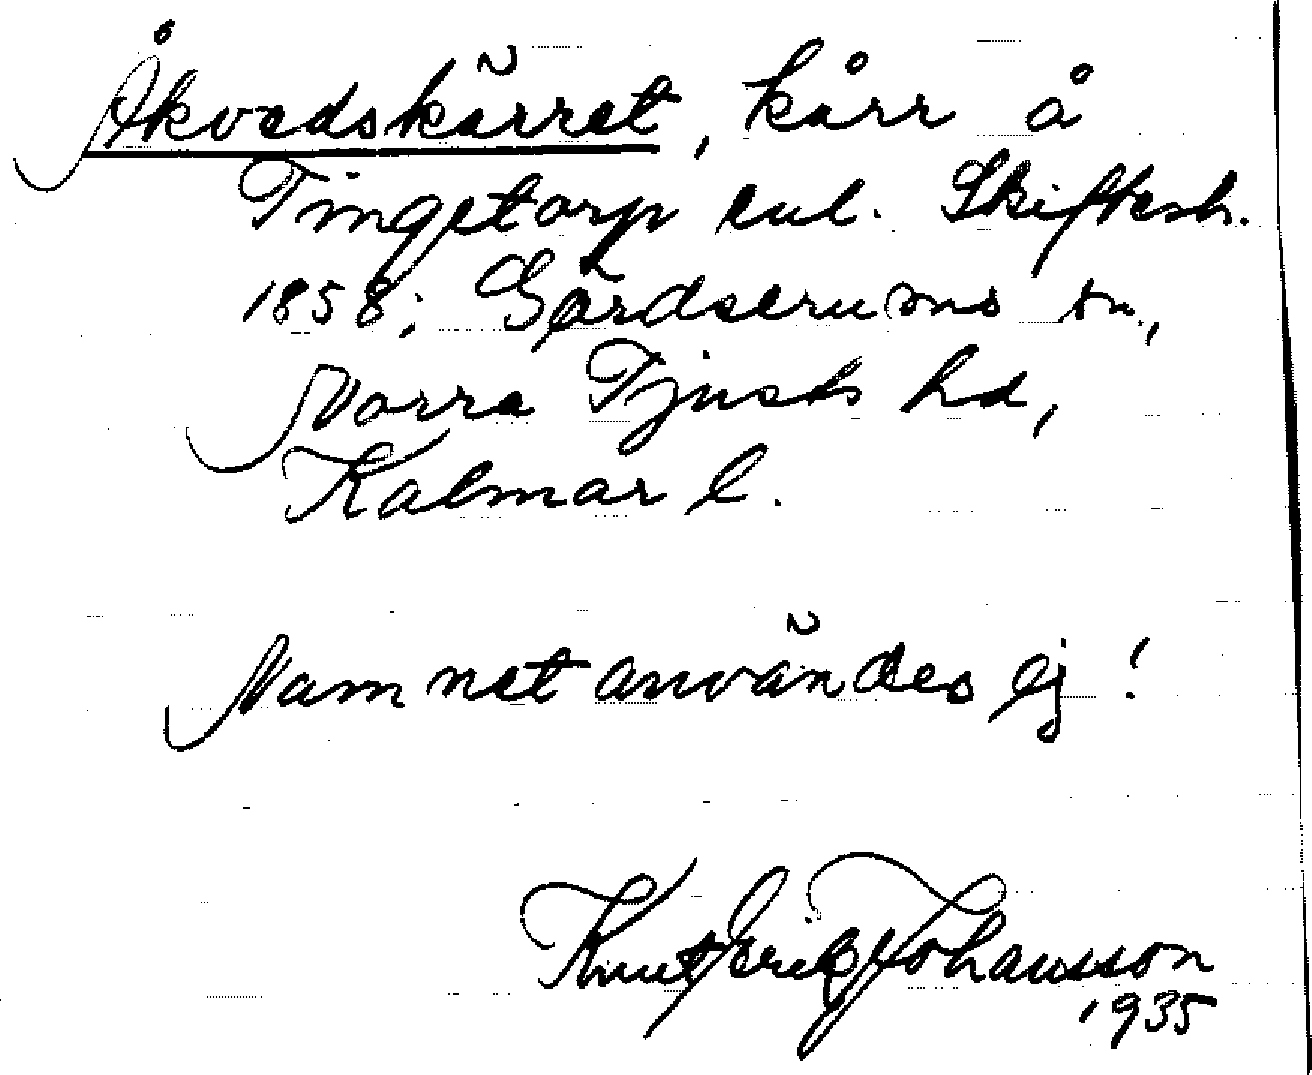 Åkvedskärret, kärr å
Tingetorp enl. Skiftesh.
1858; Gärdserums sn,
Norra Tjusts hd,
Kalmar l.
Namnet användes ej!
Knut Erik Johansson
1935